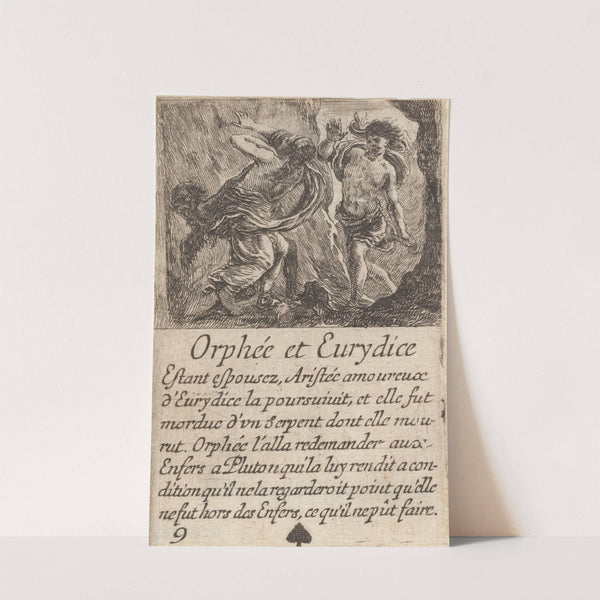 Orphée et Eurydice
Estant espousez, Aristée amoureux
d'Eurydice la poursuiuit, et elle fut
mordue d'vn Serpent dont elle mou-
rut. Orphée l'alla redemander aux
Enfers a Pluton qui la luy rendit a con-
dition qu'il ne la regarderoit point qu'elle
ne fut hors des Enfers, ce qu'il ne pût faire.
9